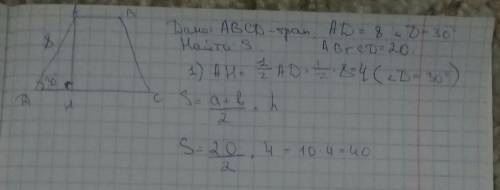 Дано: ABCD-трап. AD = 8 ∠D-30°
Найти S. AB+CD=20.
1) AH = 1/2 AD = 1/2 · 8=4 (∠D=30°)
S = a+b/2 · h
S = 20/2 · 4 = 10·4=40
A
8
30
B
H
C